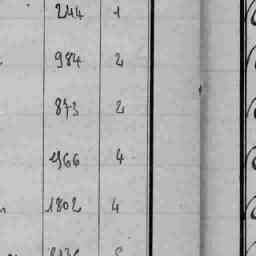 244 1
984 2
873 2
1966 4
1802 4